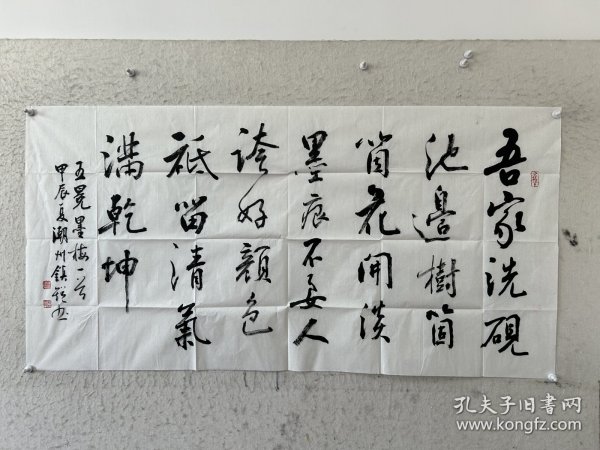 吾家洗硯
池邊樹箇
箇花開淡
墨痕不要人
誇好顏色
祗留清氣
滿乾坤
王冕墨梅一首
甲辰夏潮州鎮彩書
孔夫子旧书网
www.kongfz.com